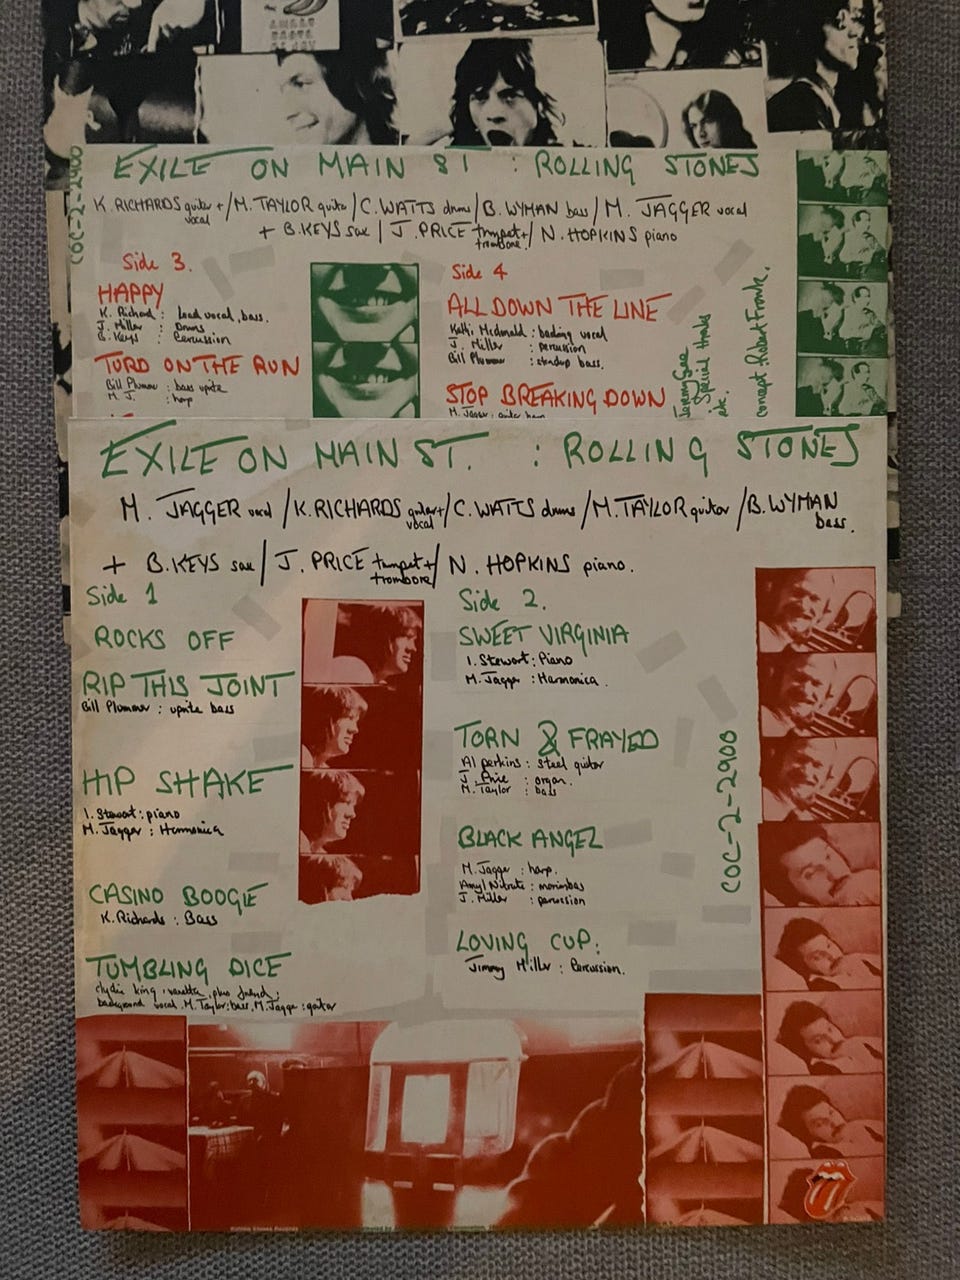 COC-2-2900
EXILE ON MAIN ST : ROLLING STONES
K. RICHARDS guitar + vocal / M. TAYLOR guitar / C. WATTS drums / B. WYMAN bass / M. JAGGER vocal
+ B. KEYS sax / J. PRICE trumpet + trombone / N. HOPKINS piano
Side 3.
HAPPY
K. Richard : Lead vocal, bass.
J. Miller : Drums
B. Keys : Percussion
TURD ON THE RUN
Bill Plummer : bass uprite
M. J. : harp
Side 4
ALL DOWN THE LINE
Kathi Mcdonald : backing vocal
J. Miller : percussion
Bill Plummer : standup bass.
STOP BREAKING DOWN
M. Jagger : guitar harp
Special thanks
etc.
concept : Robert Frank.
EXILE ON MAIN ST. : ROLLING STONES
M. JAGGER vocal / K. RICHARDS guitar + vocal / C. WATTS drums / M. TAYLOR guitar / B. WYMAN bass.
+ B. KEYS sax / J. PRICE trumpet + trombone / N. HOPKINS piano.
Side 1
ROCKS OFF
RIP THIS JOINT
Bill Plummer : uprite bass
HIP SHAKE
I. Stewart : piano
M. Jagger : Harmonica
CASINO BOOGIE
K. Richards : Bass
TUMBLING DICE
clydie king, vanetta, plus friend :
background vocal. M. Taylor : bass, M. Jagger : guitar
Side 2.
SWEET VIRGINIA
I. Stewart : Piano
M. Jagger : Harmonica.
TORN & FRAYED
Al perkins : Steel guitar
J. Price : organ.
M. Taylor : bass
BLACK ANGEL
M. Jagger : harp.
Amyl Nitrate : marimbas
J. Miller : percussion
LOVING CUP.
Jimmy Miller : Percussion.
COC-2-2900